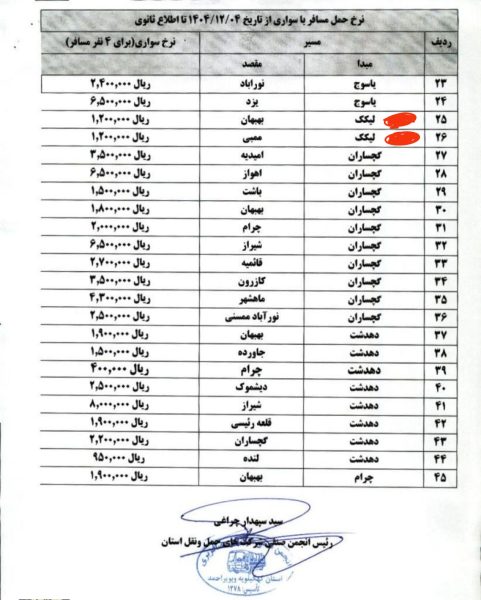 نرخ حمل مسافر با سواری از تاریخ ۱۴۰۴/۱۲/۰۴ تا اطلاع ثانوی
ردیف مسیر نرخ سواری(برای ۴ نفر مسافر)
مبدا مقصد
۲۳ یاسوج نورآباد ۲,۴۰۰,۰۰۰ ریال
۲۴ یاسوج یزد ۶,۵۰۰,۰۰۰ ریال
۲۵ لیکک بهبهان ۱,۲۰۰,۰۰۰ ریال
۲۶ لیکک ممبی ۱,۲۰۰,۰۰۰ ریال
۲۷ گچساران امیدیه ۳,۵۰۰,۰۰۰ ریال
۲۸ گچساران اهواز ۶,۵۰۰,۰۰۰ ریال
۲۹ گچساران باشت ۱,۵۰۰,۰۰۰ ریال
۳۰ گچساران بهبهان ۱,۸۰۰,۰۰۰ ریال
۳۱ گچساران چرام ۲,۰۰۰,۰۰۰ ریال
۳۲ گچساران شیراز ۶,۵۰۰,۰۰۰ ریال
۳۳ گچساران قائمیه ۲,۷۰۰,۰۰۰ ریال
۳۴ گچساران کازرون ۳,۵۰۰,۰۰۰ ریال
۳۵ گچساران ماهشهر ۴,۳۰۰,۰۰۰ ریال
۳۶ گچساران نورآباد ممسنی ۲,۵۰۰,۰۰۰ ریال
۳۷ دهدشت بهبهان ۱,۹۰۰,۰۰۰ ریال
۳۸ دهدشت جاورده ۱,۵۰۰,۰۰۰ ریال
۳۹ دهدشت چرام ۴۰۰,۰۰۰ ریال
۴۰ دهدشت دیشموک ۲,۵۰۰,۰۰۰ ریال
۴۱ دهدشت شیراز ۸,۰۰۰,۰۰۰ ریال
۴۲ دهدشت قلعه رئیسی ۱,۹۰۰,۰۰۰ ریال
۴۳ دهدشت گچساران ۲,۲۰۰,۰۰۰ ریال
۴۴ دهدشت لنده ۹۵۰,۰۰۰ ریال
۴۵ چرام بهبهان ۱,۹۰۰,۰۰۰ ریال
سید سپهدار چراغی
رئیس انجمن صنفی شرکت های حمل ونقل استان
استان کهگیلویه وبویراحمد
تأسیس ۱۳۷۸